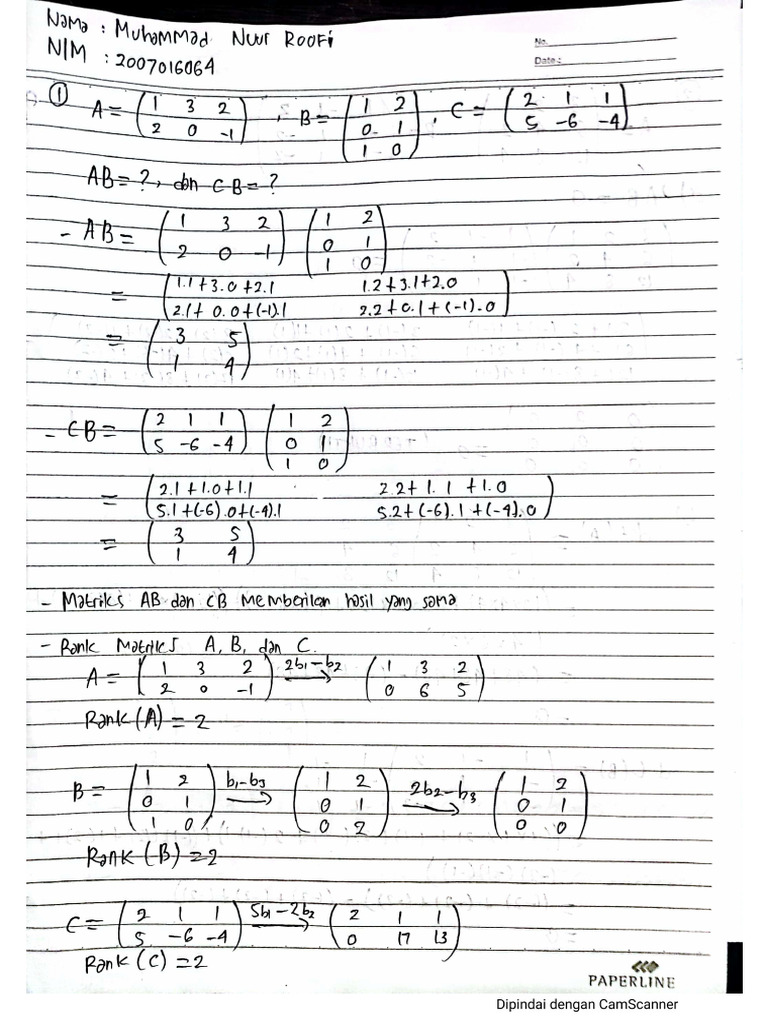 Nama : Muhammad Nuur Roofi
NIM : 2007016064
No.
Date :
① A = ( 1 3 2 , B = ( 1 2 , C = ( 2 1 1
2 0 -1 ) 0 1 5 -6 -4 )
1 0 )
AB = ?, dan CB = ?
- AB = ( 1 3 2 ( 1 2
2 0 -1 ) 0 1
1 0 )
= ( 1.1+3.0+2.1 1.2+3.1+2.0
2.1+0.0+(-1).1 2.2+0.1+(-1).0 )
= ( 3 5
1 4 )
- CB = ( 2 1 1 ( 1 2
5 -6 -4 ) 0 1
1 0 )
= ( 2.1+1.0+1.1 2.2+1.1+1.0
5.1+(-6).0+(-4).1 5.2+(-6).1+(-4).0 )
= ( 3 5
1 4 )
- Matriks AB dan CB memberikan hasil yang sama
- Rank Matriks A, B, dan C.
A = ( 1 3 2 2b1-b2 → ( 1 3 2
2 0 -1 ) 0 6 5 )
Rank(A) = 2
B = ( 1 2 b1-b3 → ( 1 2 2b2-b3 → ( 1 2
0 1 0 1 0 1
1 0 ) 0 2 ) 0 0 )
Rank(B) = 2
C = ( 2 1 1 5b1-2b2 → ( 2 1 1
5 -6 -4 ) 0 17 13 )
Rank (C) = 2
PAPERLINE
Dipindai dengan CamScanner